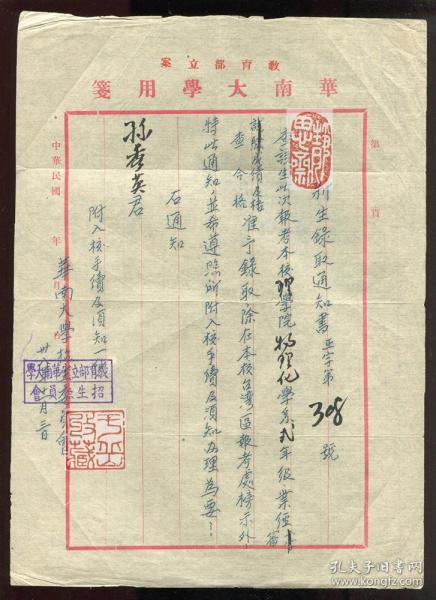 教育部立案
華南大學用箋
第 頁
新生錄取通知書 亞字第 308 號
查該生此次報考本校理學院物理化學系弍年級業經審
查合格准予錄取除在本校台灣區報考處榜示外
特此通知並希遵照所附入校手續及須知办理為要
右通知
孫秀英君
附入校手續及須知一
華南大學招生委員會
中華民國 年 月 日
卅 月三日
教育部立案華南大學
招生委員會
孔夫子旧书网
www.kongfz.com